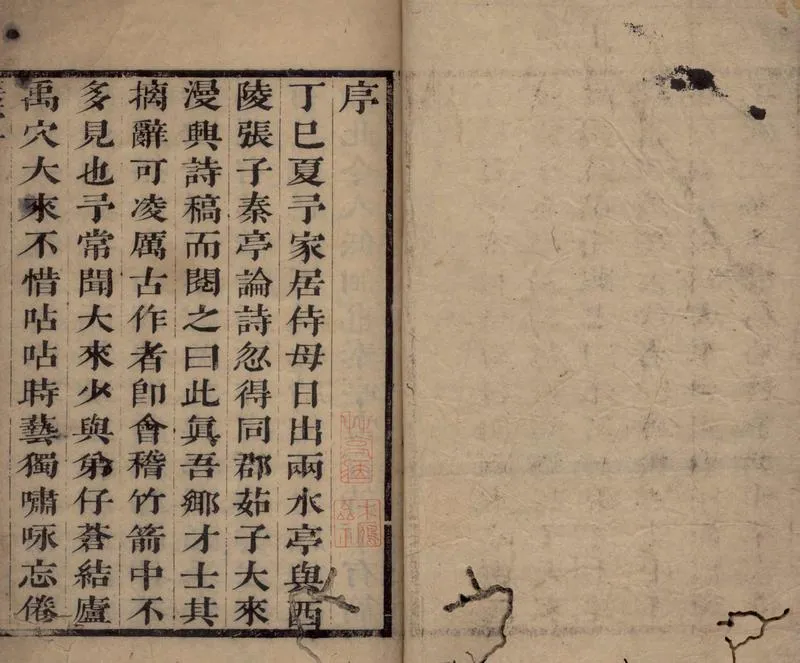 序
丁巳夏予家居侍母日出兩水亭與酉
陵張子秦亭論詩忽得同郡茹子大來
漫興詩稿而閱之曰此眞吾鄉才士其
摛辭可凌厲古作者卽會稽竹箭中不
多見也予常聞大來少與弟仔蒼結廬
禹穴大來不惜呫呫時藝獨嘯咏忘倦